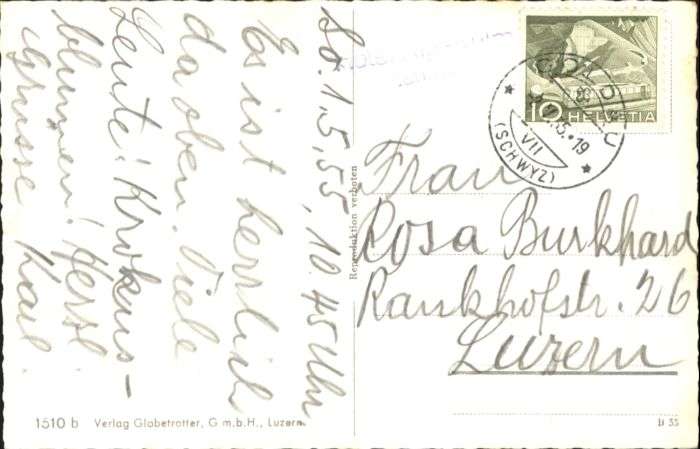 So. 1.5.55, 10.45 Uhr
Es ist herrlich
da oben. Viele
Leute! Krokus-
blumen! Herzl.
Grüsse Karl.
Reproduktion verboten
1510 b Verlag Globetrotter, G.m.b.H., Luzern.
HELVETIA
10
VII
(SCHWYZ)
Frau
Rosa Burkhard
Rankhofstr. 26
Luzern